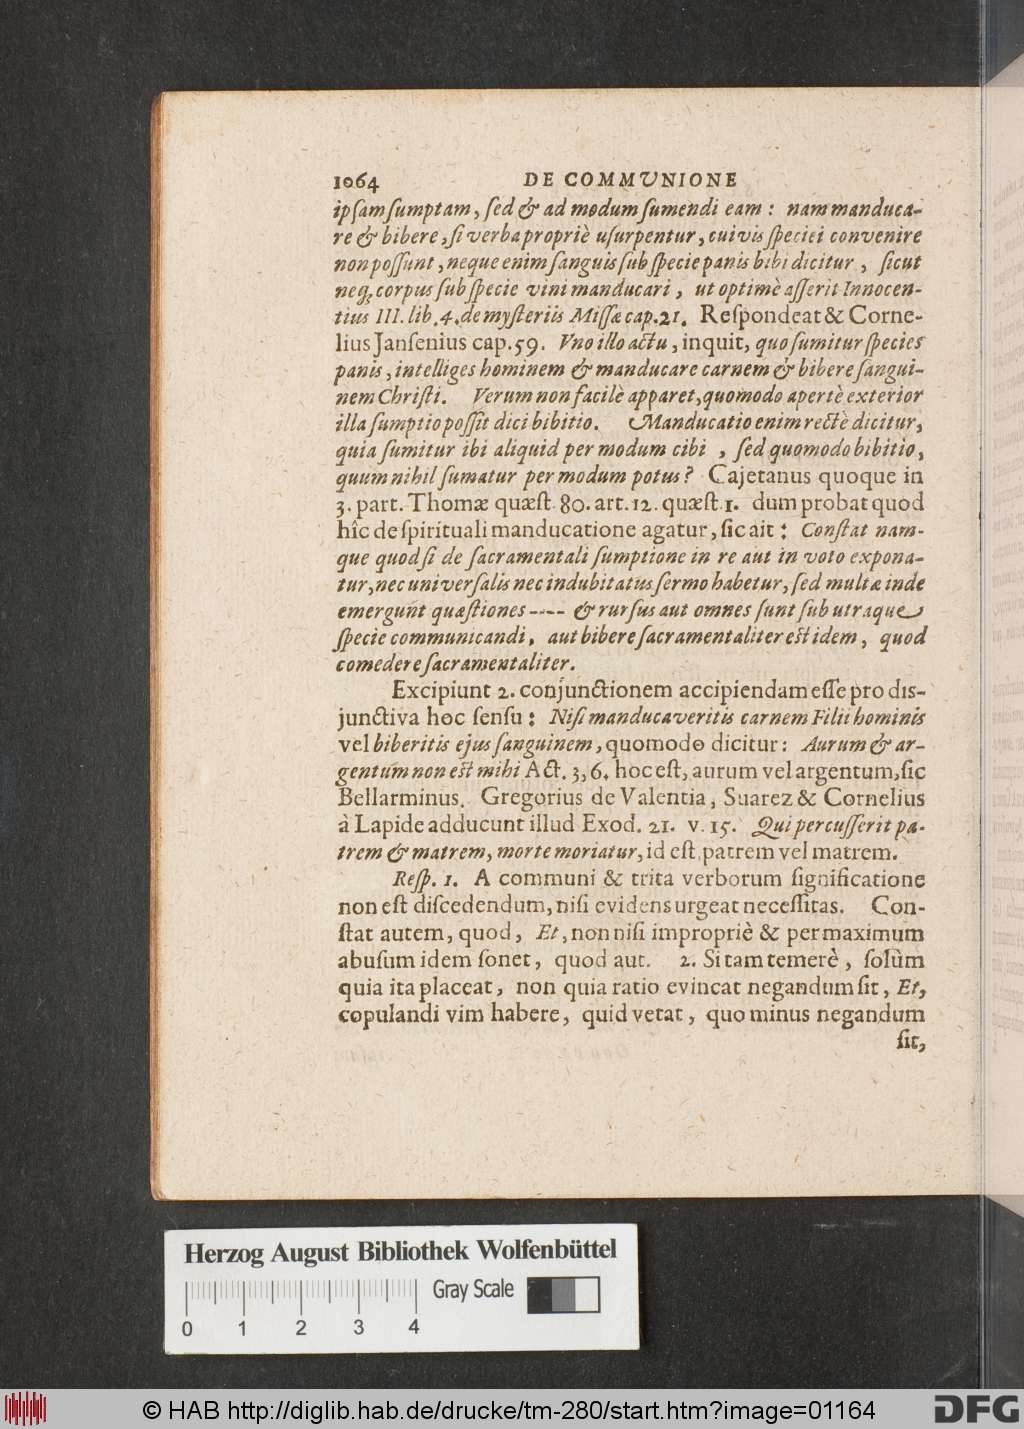 1064 DE COMMVNIONE
ipſam ſumptam, ſed & ad modum ſumendi eam : nam manduca-
re & bibere, ſi verba propriè uſurpentur, cuivis ſpeciei convenire
non poſſunt, neque enim ſanguis ſub ſpecie panis bibi dicitur, ſicut
neq; corpus ſub ſpecie vini manducari, ut optimè aſſerit Innocen-
tius III. lib. 4. de myſteriis Miſſæ cap. 21. Reſpondeat & Corne-
lius Janſenius cap. 59. Vno illo actu, inquit, quo ſumitur ſpecies
panis, intelliges hominem & manducare carnem & bibere ſangui-
nem Chriſti. Verum non facilè apparet, quomodo apertè exterior
illa ſumptio poſſit dici bibitio. Manducatio enim rectè dicitur,
quia ſumitur ibi aliquid per modum cibi , ſed quomodo bibitio,
quum nihil ſumatur per modum potus? Cajetanus quoque in
3. part. Thomæ quæſt. 80. art. 12. quæſt. 1. dum probat quod
hîc de ſpirituali manducatione agatur, ſic ait : Conſtat nam-
que quod ſi de ſacramentali ſumptione in re aut in voto expona-
tur, nec univerſalis nec indubitatus ſermo habetur, ſed multæ inde
emergunt quæſtiones ---- & rurſus aut omnes ſunt ſub utraque
ſpecie communicandi, aut bibere ſacramentaliter eſt idem, quod
comedere ſacramentaliter.
Excipiunt 2. conjunctionem accipiendam eſſe pro dis-
junctiva hoc ſenſu : Niſi manducaveritis carnem Filii hominis
vel biberitis ejus ſanguinem, quomodo dicitur : Aurum & ar-
gentum non eſt mihi Act. 3, 6. hoc eſt, aurum vel argentum, ſic
Bellarminus. Gregorius de Valentia, Suarez & Cornelius
à Lapide adducunt illud Exod. 21. v. 15. Qui percuſſerit pa-
trem & matrem, morte moriatur, id eſt, patrem vel matrem.
Reſp. 1. A communi & trita verborum ſignificatione
non eſt diſcedendum, niſi evidens urgeat neceſſitas. Con-
ſtat autem, quod, Et, non niſi impropriè & per maximum
abuſum idem ſonet, quod aut. 2. Si tam temerè, ſolùm
quia ita placeat, non quia ratio evincat negandum ſit, Et,
copulandi vim habere, quid vetat, quo minus negandum
ſit,
Herzog August Bibliothek Wolfenbüttel
Gray Scale
0 1 2 3 4
© HAB http://diglib.hab.de/drucke/tm-280/start.htm?image=01164
DFG